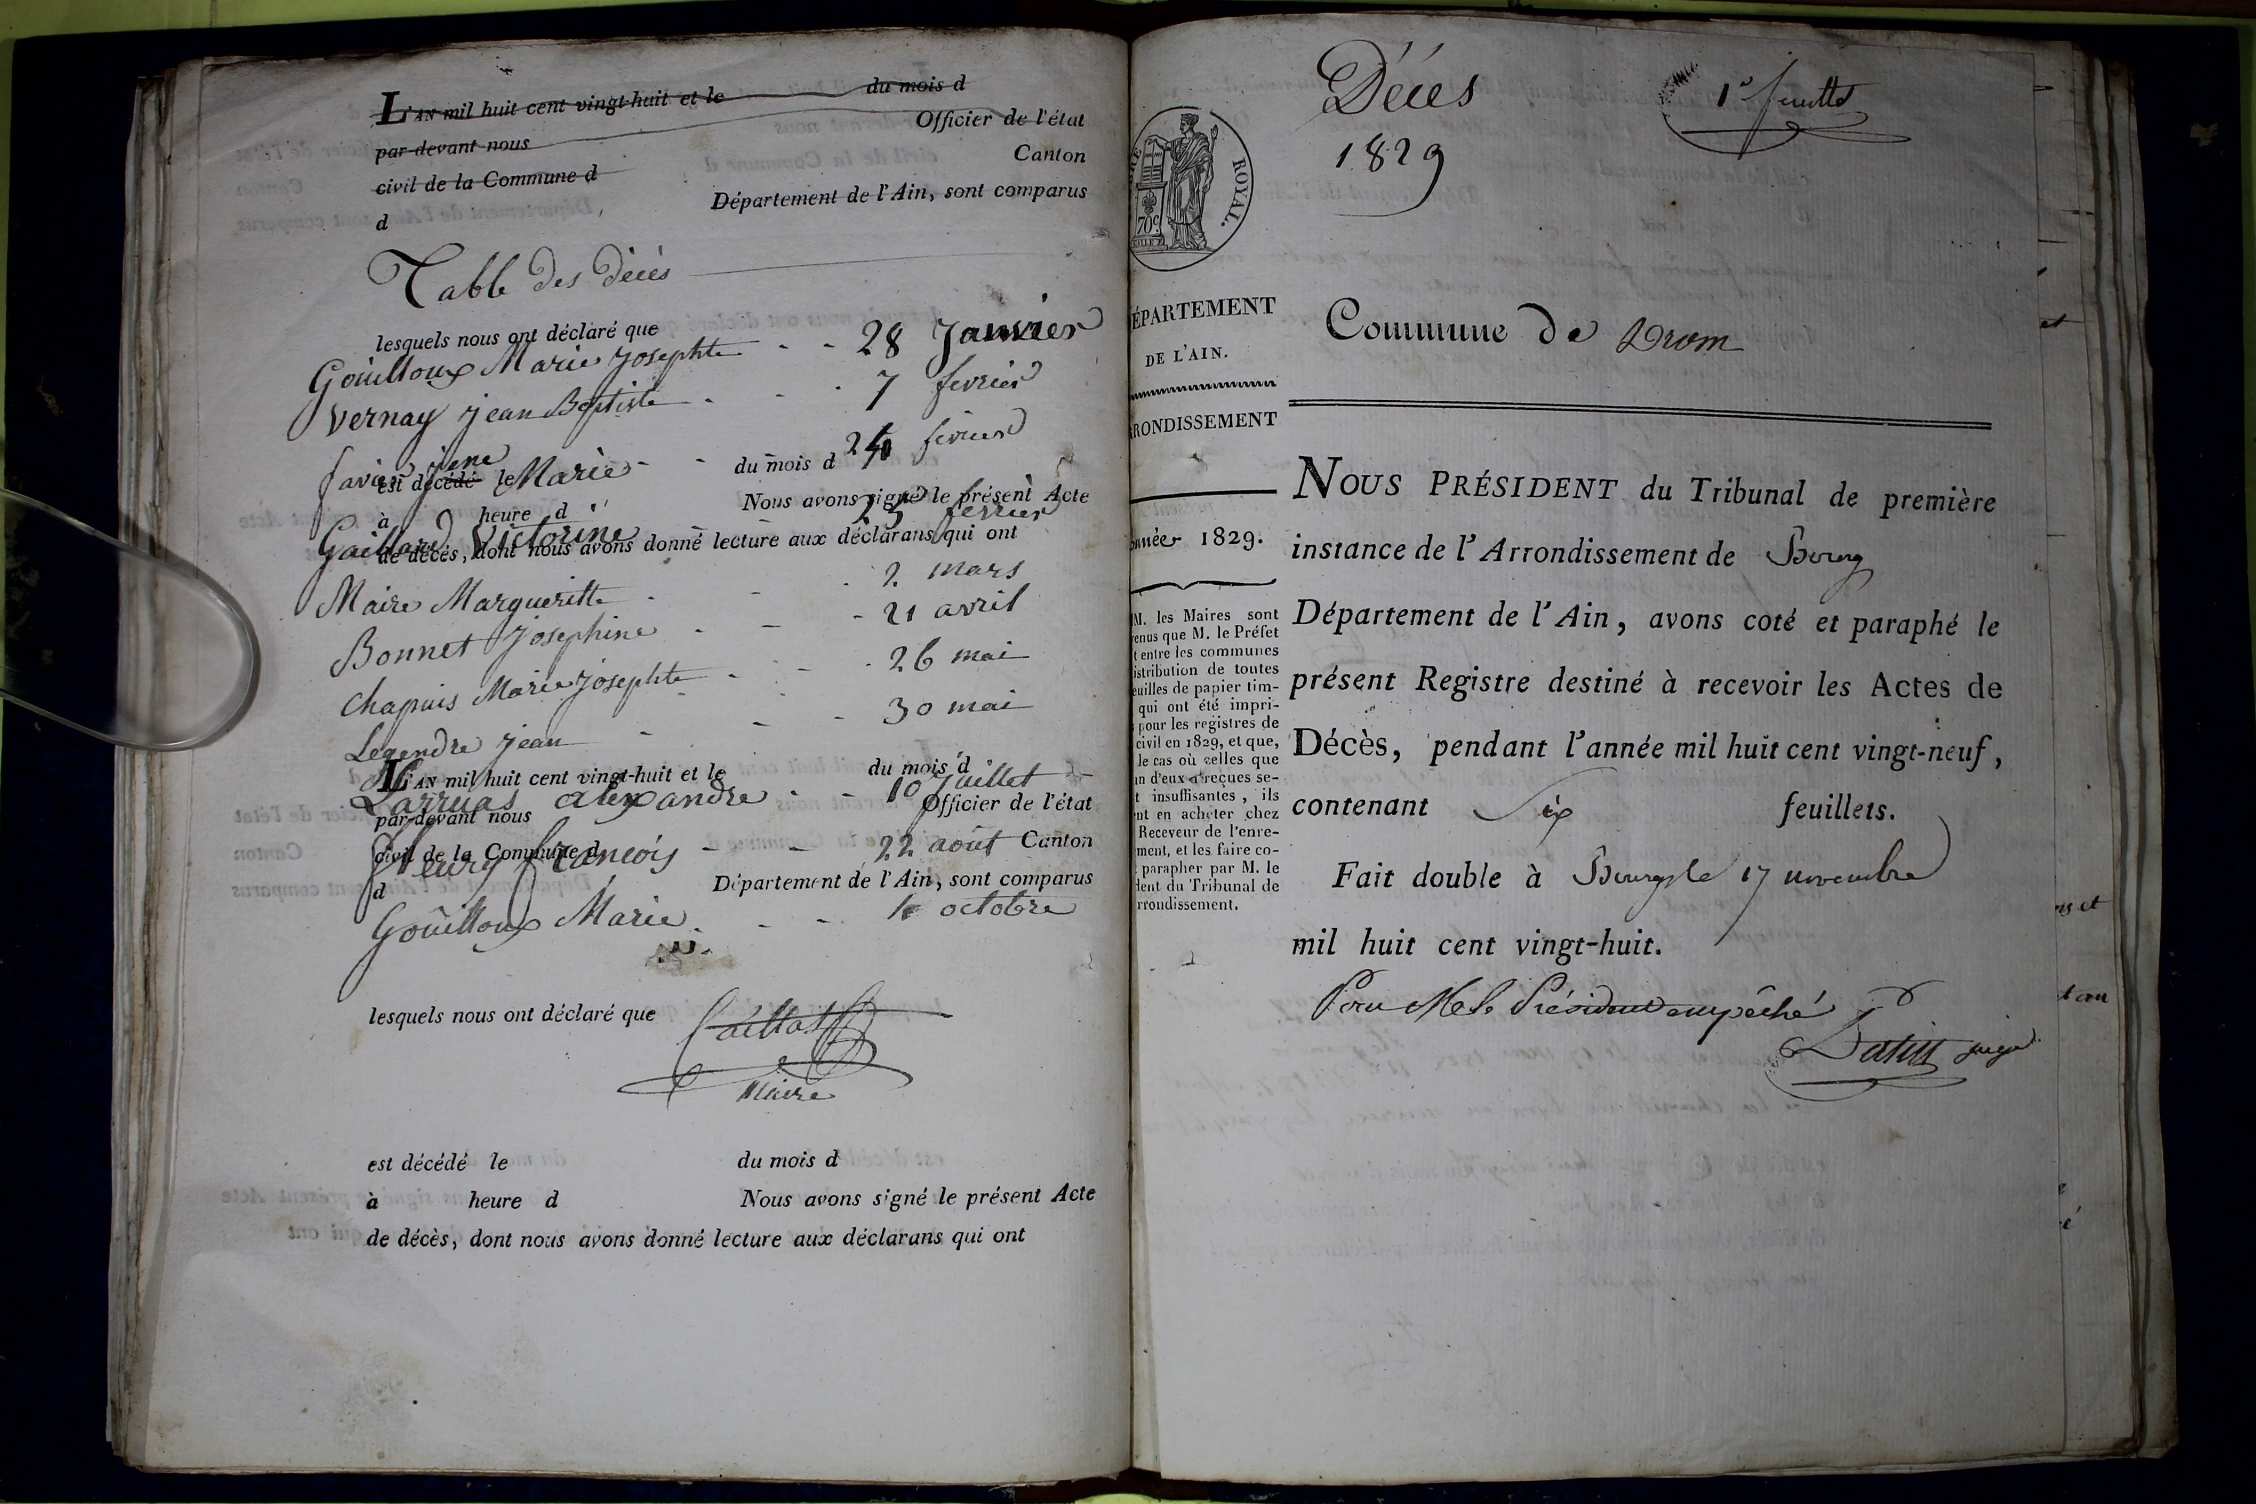 L'AN mil huit cent vingt-huit et le du mois d
par-devant nous Officier de l'état
civil de la Commune d Canton
d Département de l'Ain, sont comparus
Table des Décès
lesquels nous ont déclaré que
Gouilloux Marie Josephte - - 28 Janvier
Vernay jean Baptiste - - - 7 fevrier
favier jene Marie - - 24 fevrier
est décédé le du mois d
à heure d Nous avons signé le présent Acte
Gaillard Victorine 25 fevrier
de décès, dont nous avons donné lecture aux déclarans qui ont
Maire Margueritte - - - 2 mars
Bonnet josephine - - - 21 avril
Chapuis Marie josephte - - - 26 mai
Legendre jean - - - 30 mai
L'AN mil huit cent vingt-huit et le du mois d
Larruas alexandre - - 10 Juillet
par-devant nous Officier de l'état
civil de la Commune d Canton
fleury francois - - 22 août
d Département de l'Ain, sont comparus
Gouilloux Marie - - - 4 octobre
lesquels nous ont déclaré que
Maire
est décédé le du mois d
à heure d Nous avons signé le présent Acte
de décès, dont nous avons donné lecture aux déclarans qui ont
Décès
1829
1er feuillet
ROYAL.
70c
ÉPARTEMENT
DE L'AIN.
RONDISSEMENT
nnée 1829.
M. les Maires sont
enus que M. le Préfet
t entre les communes
istribution de toutes
euilles de papier tim-
qui ont été impri-
pour les registres de
civil en 1829, et que,
le cas où celles que
un d'eux a reçues se-
t insuffisantes, ils
nt en acheter chez
Receveur de l'enre-
ment, et les faire co-
parapher par M. le
dent du Tribunal de
rrondissement.
Commune de Drom
NOUS PRÉSIDENT du Tribunal de première
instance de l'Arrondissement de Bourg
Département de l'Ain, avons coté et paraphé le
présent Registre destiné à recevoir les Actes de
Décès, pendant l'année mil huit cent vingt-neuf,
contenant Six feuillets.
Fait double à Bourg le 17 novembre
mil huit cent vingt-huit.
Pour Mr le Président empêché
juge